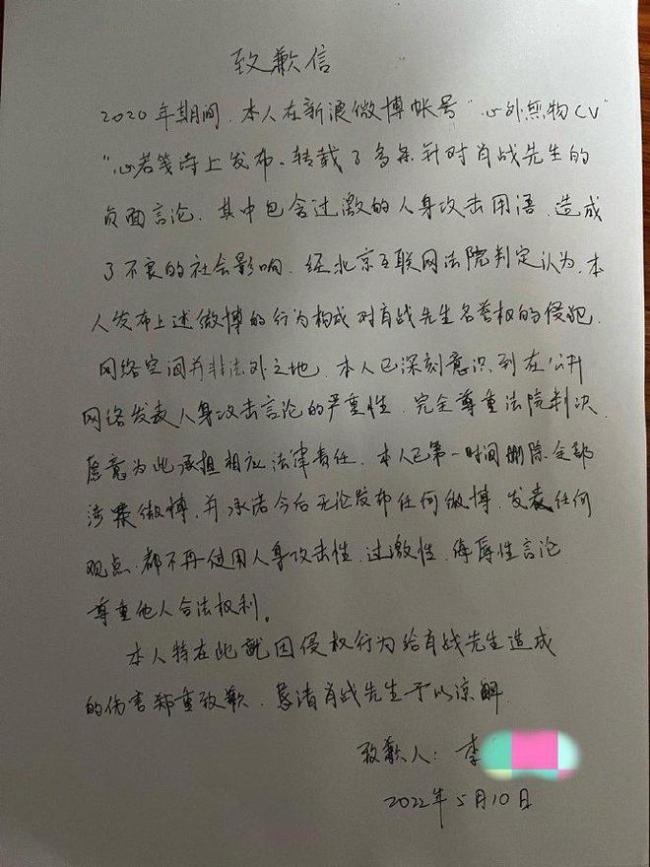 致歉信
2020年期间,本人在新浪微博帐号"心外無物CV"
"心若笺诗上发布、转载了多条针对肖战先生的
负面言论,其中包含过激的人身攻击用语,造成
了不良的社会影响,经北京互联网法院判定认为,本
人发布上述微博的行为构成对肖战先生名誉权的侵犯.
网络空间并非法外之地,本人已深刻意识到在公开
网络发表人身攻击言论的严重性,完全尊重法院判决
愿意为此承担相应法律责任.本人已第一时间删除全部
涉案微博,并承诺今后无论发布任何微博、发表任何
观点,都不再使用人身攻击性、过激性、侮辱性言论
尊重他人合法权利。
本人特在此就因侵权行为给肖战先生造成
的伤害郑重致歉,恳请肖战先生予以谅解.
致歉人:李
2022年5月10日